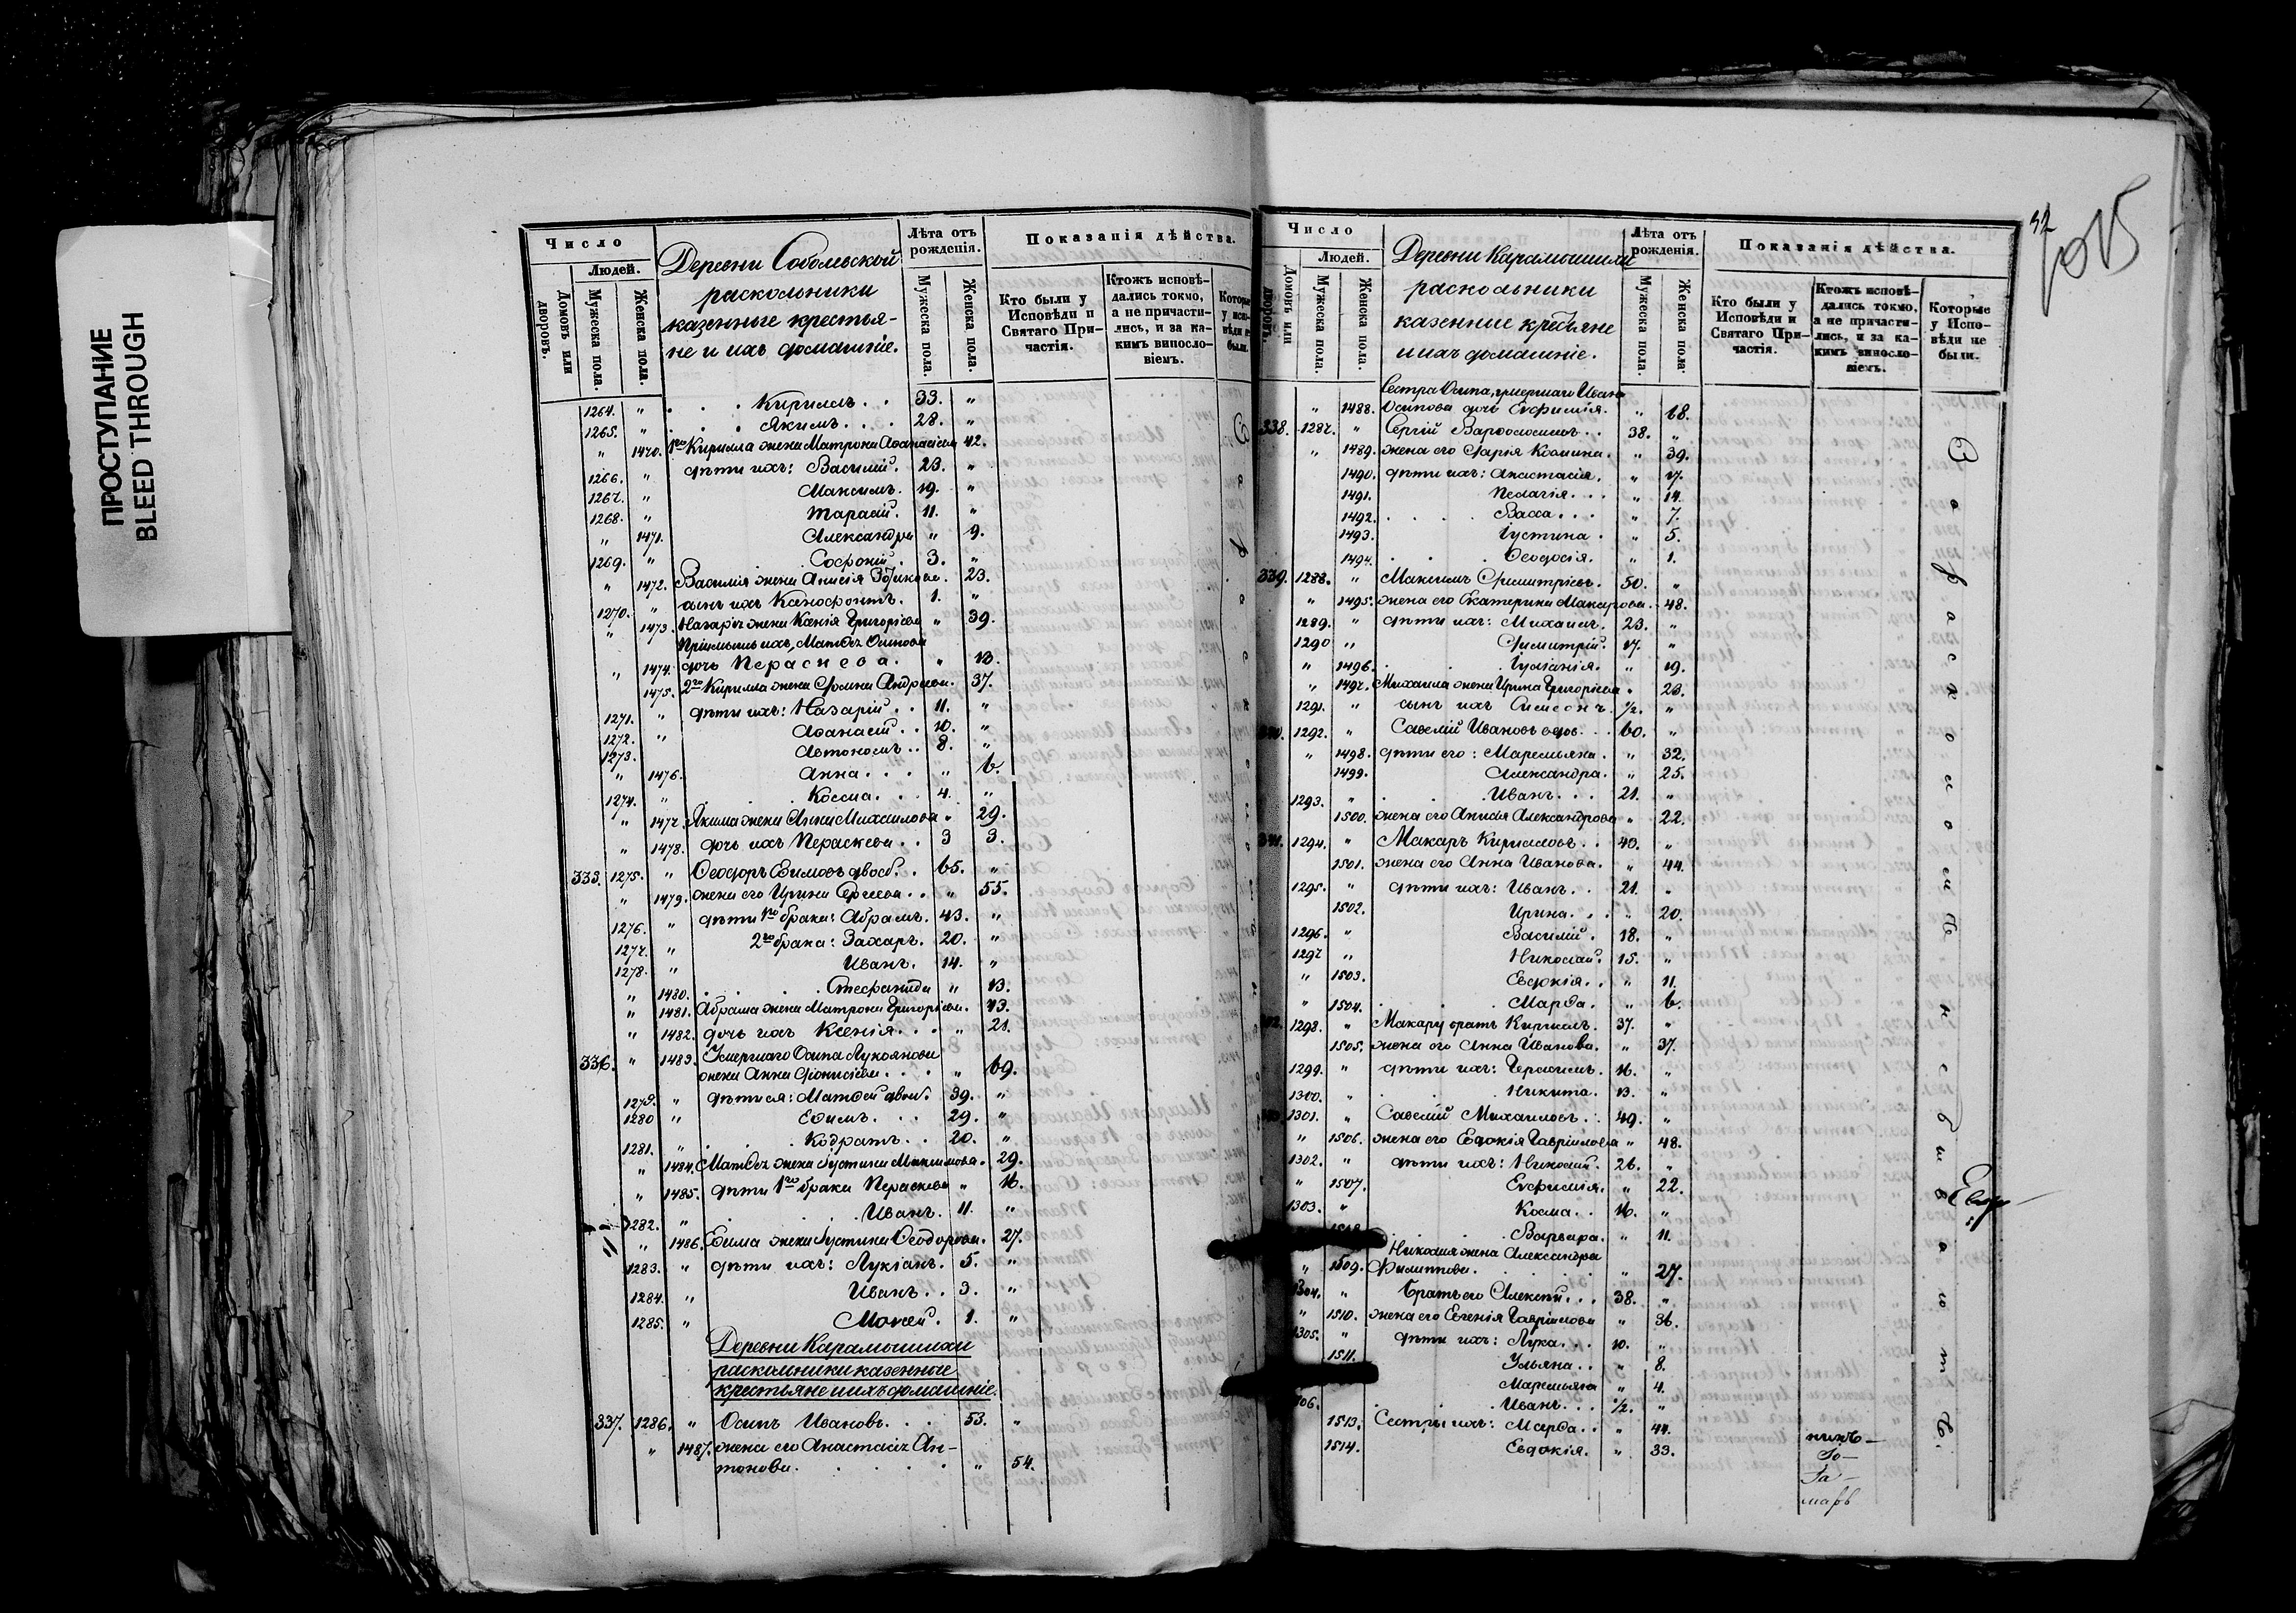 ПРОСТУПАНИЕ
BLEED THROUGH
Число
Людей.
Домовъ или дворовъ.
Мужеска пола.
Женска пола.
Деревни Соболевской
раскольники
казенные крестья-
не и ихъ домашніе.
Лѣта отъ рожденія.
Мужеска пола.
Женска пола.
Показанія дѣйства.
Кто были у Исповѣди и Святаго Причастія.
Ктожъ исповѣ-
дались токмо,
а не причасти-
лись, и за ка-
кимъ винoсло-
віемъ.
1264. " Кириллъ . . 33. "
1265. " Якимъ . . . 28. "
" 1470. 1го Кирилла жена Матрона Аѳанасіева 42.
1266. " дѣти ихъ: Василій. 23. "
1267. " Максимъ. 19. "
1268. " Тарасій. 11. "
" 1471. Александра " 9.
1269. " Софроній. 3. "
" 1472. Василія жена Анисія 23.
1270. " сынъ ихъ Ксенофонтъ. 1. "
" 1473. Назарія жена Ксенія Григорьева " 39.
Матвѣя Осипова
" 1474. дочь Пераскева. " 13.
1475. 2го Кирилла жена Андреева. 37.
1271. " дѣти ихъ: Назарій . . 11. "
1272. " Аѳанасій . . 10. "
1273. Автономъ . . 8. "
" 1476. Анна . . . " 6.
1274. " Косма. . . 4. "
" 1477. Якима жена Анна Михаилова " 29.
" 1478. дочь ихъ Пераскева . . 3 3.
333. 1275. " Ѳеодоръ Еѳимовъ двоеб. . 65. "
" 1479. жена его Ирина Сергеева . . " 55.
1276. " дѣти 1го брака: Абрамъ. 43. "
1277. " 2го брака: Захаръ. 20. "
1278. " Иванъ. 14. "
" 1480. Стефанида " 13.
" 1481. Абрама жена Матрона Григорьева. 43.
" 1482. дочь ихъ Ксенія. . . " 21.
336. " 1483. Умершаго Осипа Лукоянова
жена Анна Діонисіева . . . " 69.
1279. " дѣти ея: Матвей двоеб. 39. "
1280 " Еѳимъ. . . 29. "
1281. " Кодратъ. . 20. "
" 1484. Матвея жена Іустина Максимова. 29.
" 1485. дѣти 1го брака Пераскева " 16.
1282. " Иванъ. 11. "
" 1486. Еѳима жена Іустина Ѳеодорова. 27.
1283. " дѣти ихъ: Лукіанъ. 5. "
1284. " Иванъ. . 3. "
1285. " Моисей. 1. "
Деревни Карамышихи
раскольники казенные
крестьяне и ихъ домашніе.
337. 1286. " Осипъ Ивановъ. . . 53. "
" 1487. жена его Анастасія Ан-
тонова. . . . . " 54.
Число
Людей.
Домовъ или дворовъ.
Мужеска пола.
Женска пола.
Деревни Карамышихи
раскольники
казенные крестьяне
и ихъ домашніе.
Лѣта отъ рожденія.
Мужеска пола.
Женска пола.
Показанія дѣйства.
Кто были у Исповѣди и Святаго Причастія.
Ктожъ исповѣ-
дались токмо,
а не причасти-
лись, и за ка-
кимъ виносло-
віемъ.
Которые у Исповѣди не были.
32
Сестра Осипа, умершаго Ивана
" 1488. Осипова дочь Евфимія. " 68.
338. 1287. " Сергій Варѳоломѣевъ . . 38. "
" 1489. жена его Дарія Космина. " 39.
1490. дѣти ихъ: Анастасія. " 17.
1491. Пелагія. . . " 14.
1492. Васса . . . " 7.
1493. Іустина . " 5.
1494. Ѳеодосія. " 1.
339. 1288. " Максимъ Димитріевъ. 50. "
" 1495. жена его Екатерина Макарова. 48.
1289. " дѣти ихъ: Михаилъ. 23. "
1290 " Димитрій. 17. "
" 1496. Іуліанія. " 19.
" 1497. Михаила жена Ирина Григорьева " 23.
1291. " сынъ ихъ Симеонъ. 1/2. "
340. 1292. " Савелій Ивановъ вдов. . . 60. "
" 1498. дѣти его: Маремьяна . " 32.
1499. Александра. " 25.
1293. " Иванъ. . . 21. "
1500. жена его Анисья Александрова " 22.
341. 1294. " Макаръ Кирилловъ. . 40. "
1501. жена его Анна Иванова. " 44.
1295. " дѣти ихъ: Иванъ. . 21. "
1502. Ирина. . . " 20.
1296. " Василій. 18. "
1297 " Николай. 15. "
" 1503. Евдокія. . " 11.
" 1504. Марѳа. " 6.
342. 1298. " Макару братъ Кириллъ. 37. "
1505. жена его Анна Иванова. " 37.
1299. " дѣти ихъ: Герасимъ. 16. "
1300. " Никита. 13. "
1301. " Савелій Михаиловъ. . 49. "
" 1506. жена его Евдокія Гавриилова " 48.
1302. " дѣти ихъ: Николай. 26. "
" 1507. Евфимія. " 22.
1303. " Косма. . 16. "
Варвара. " 11.
Николая жена Александра
" 1509. Филиппова. " 27.
1304. " Братъ его Алексѣй. . . 38. "
" 1510. жена его Евгенія Гавриилова " 36.
1305. " дѣти ихъ: Лука. . . 10. "
1511. Ульяна. . " 8.
Маремьяна " 4.
Иванъ. . . 1/2. "
1513. Сестры ихъ: Марѳа. . " 44.
1514. Евдокія. " 33.
За расколомъ не бываютъ.